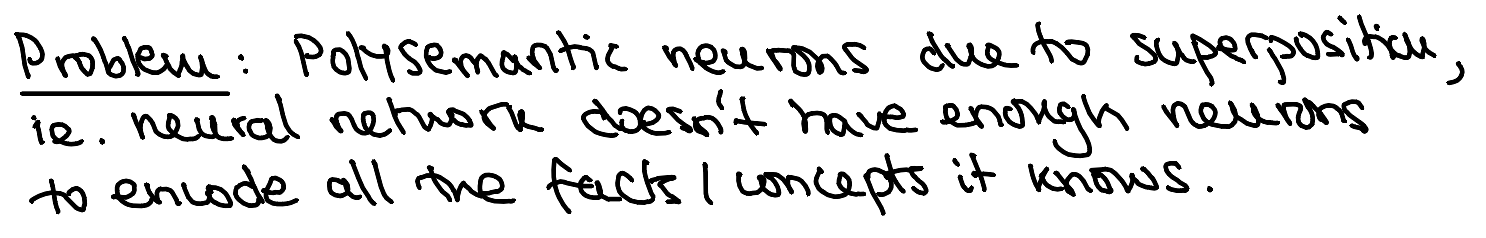 Problem: Polysemantic neurons due to superposition,
ie. neural network doesn't have enough neurons
to encode all the facts / concepts it knows.